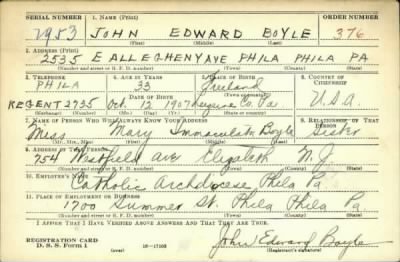 SERIAL NUMBER 1. NAME (Print) ORDER NUMBER
2953 JOHN EDWARD BOYLE 376
(First) (Middle) (Last)
2. ADDRESS (Print)
2535 E ALLEGHENY AVE PHILA PHILA PA
(Number and street or R. F. D. number) (Town) (County) (State)
3. TELEPHONE 4. AGE IN YEARS 5. PLACE OF BIRTH 6. COUNTRY OF CITIZENSHIP
PHILA 33 Freeland
DATE OF BIRTH
REGENT 2735 Oct. 12 1907 Luzerne Co. Pa. U.S.A.
(Exchange) (Number) (Mo.) (Day) (Yr.) (State or country)
7. NAME OF PERSON WHO WILL ALWAYS KNOW YOUR ADDRESS 8. RELATIONSHIP OF THAT PERSON
Miss Mary Immaculata Boyle Sister
(Mr., Mrs., Miss) (First) (Middle) (Last)
9. ADDRESS OF THAT PERSON
754 Westfield Ave Elizabeth N. J.
(Number and street or R. F. D. number) (Town) (County) (State)
10. EMPLOYER'S NAME
Catholic Archdiocese Phila Pa
11. PLACE OF EMPLOYMENT OR BUSINESS
1700 Summer St. Phila Phila Pa
(Number and street or R. F. D. number) (Town) (County) (State)
I AFFIRM THAT I HAVE VERIFIED ABOVE ANSWERS AND THAT THEY ARE TRUE.
REGISTRATION CARD
D. S. S. Form 1 (over) 16-17105 John Edward Boyle